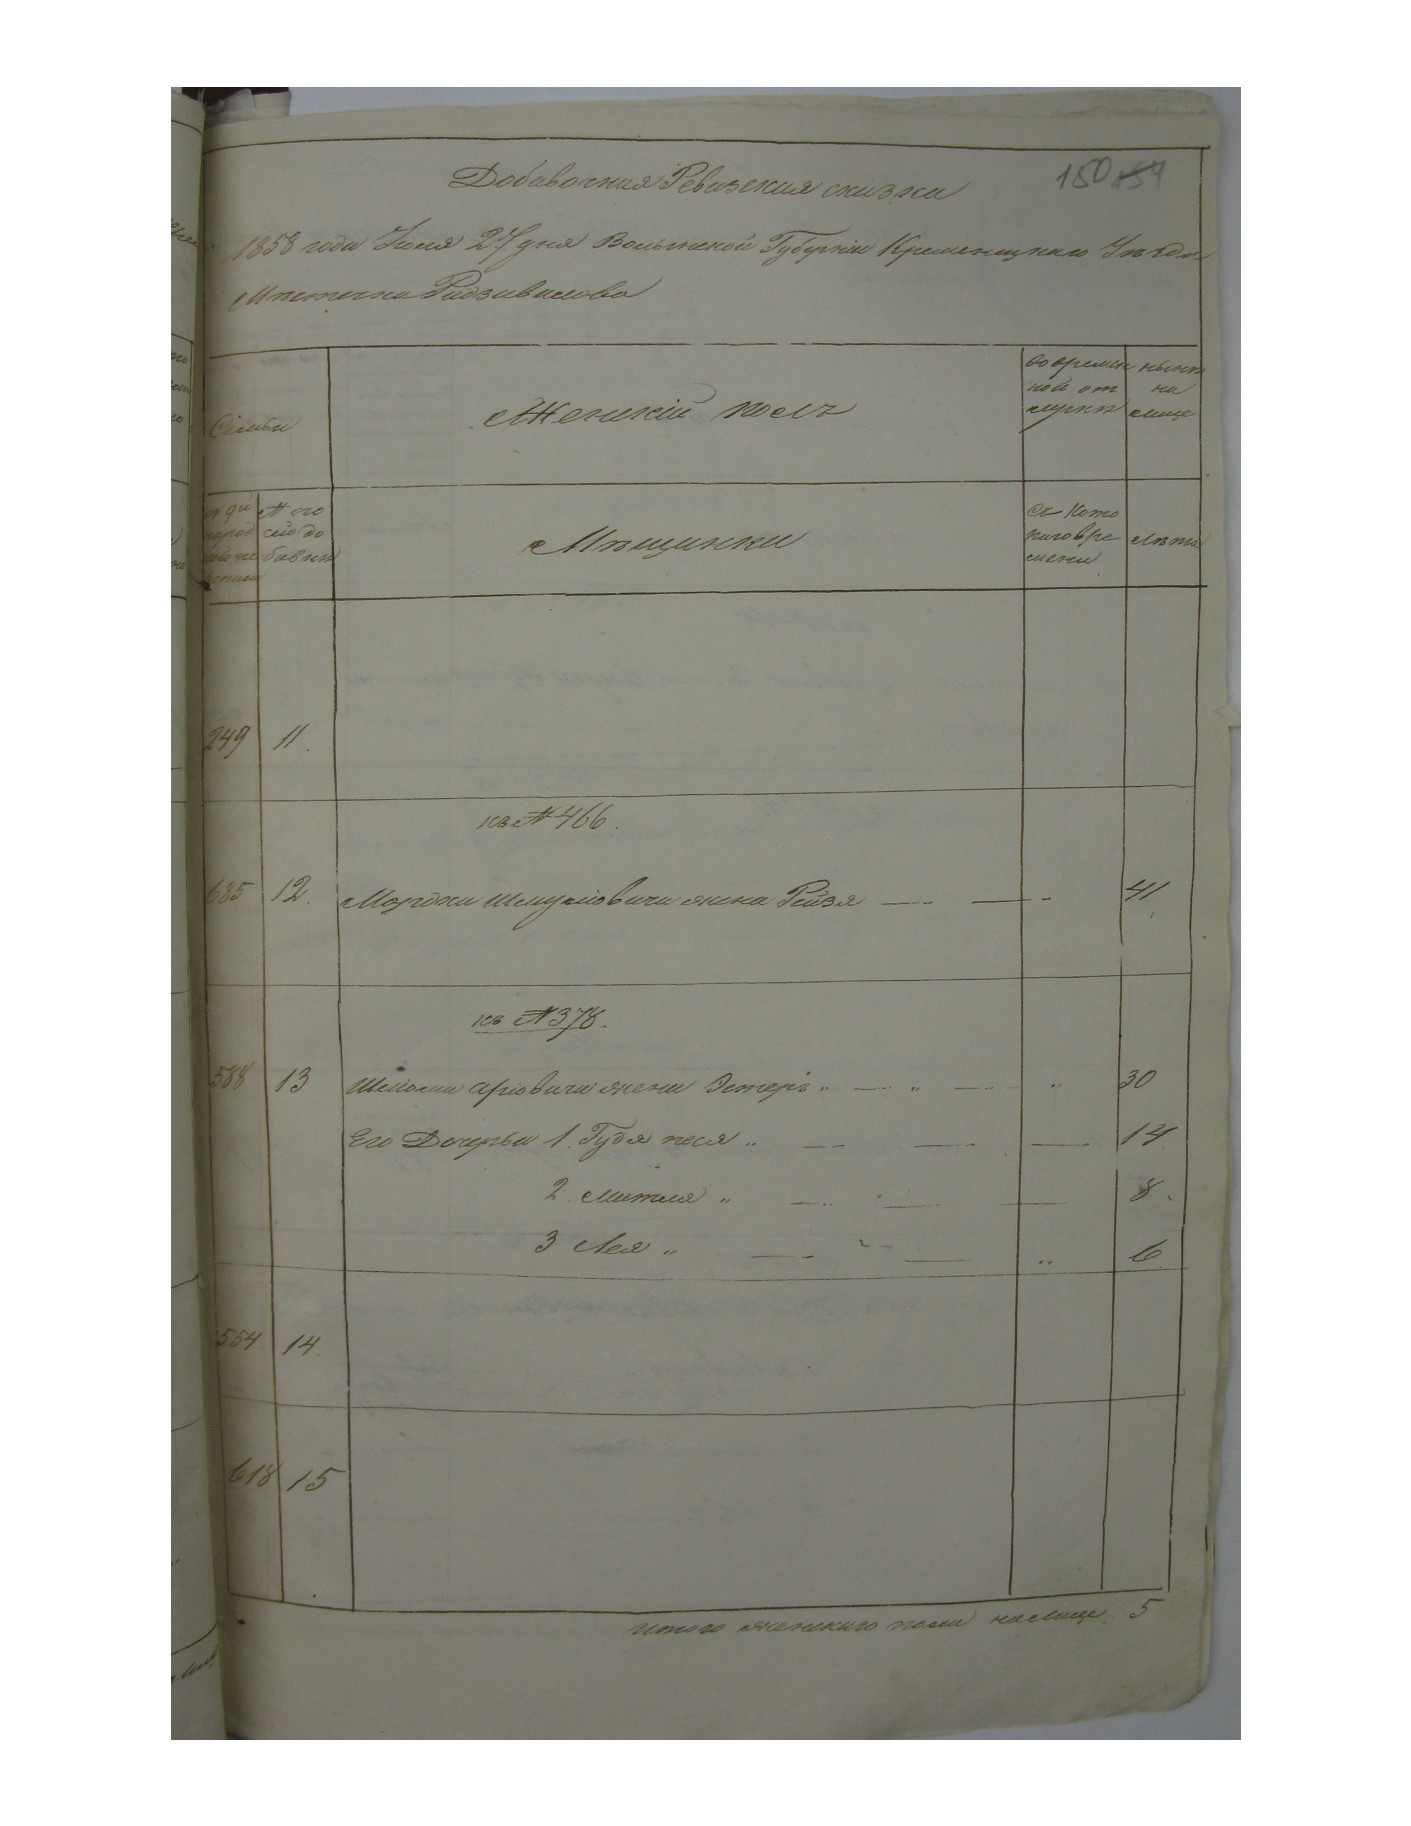 Добавочная Ревизская сказка
150 154
1858 года Июля 27 дня Волынской Губерніи Кременецкаго Уѣзда
Мѣстечка Радзивилова
Семьи
Женскій полъ
во времен
ной от
лучкѣ
нынѣ
на
лице
№ по
сей до
бавкѣ
Мѣщинки
съ кото
раго вре
мени
Лѣта
249 11.
къ № 466.
685 12. Мордка Шмулiовича жена Рейзя 41
къ № 378.
588 13 Шліома Аріовича жена Эстеръ 30
Его Дочерьи 1. Гудя песя 14
2. Митля 8.
3 Лея 6
554 14
618 15
итого женскаго пола на лице 5